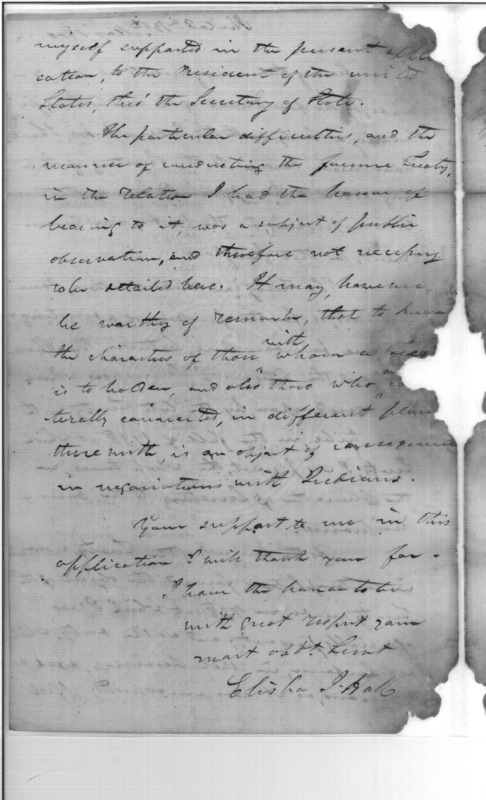 myself supported in the present appli
cation, to the President of the united
States, thro' the Secretary of State.
The particular difficulties, and the
manner of conducting the former Treaty,
in the relation I had the honor of
bearing to it, was a subject of public
observation, and therefore not necessary
to be detailed here. It may, however,
be worthy of remarks, that to know
the characters of those with whom a
is to holden, and also those who are
terally connected, in different places
therewith, is an object of consequence
in negociations with Indians.
Your support to me in this
application I will thank you for.
I have the honor to be
with great respect your
most obdt. Servt
Elisha I. Hall